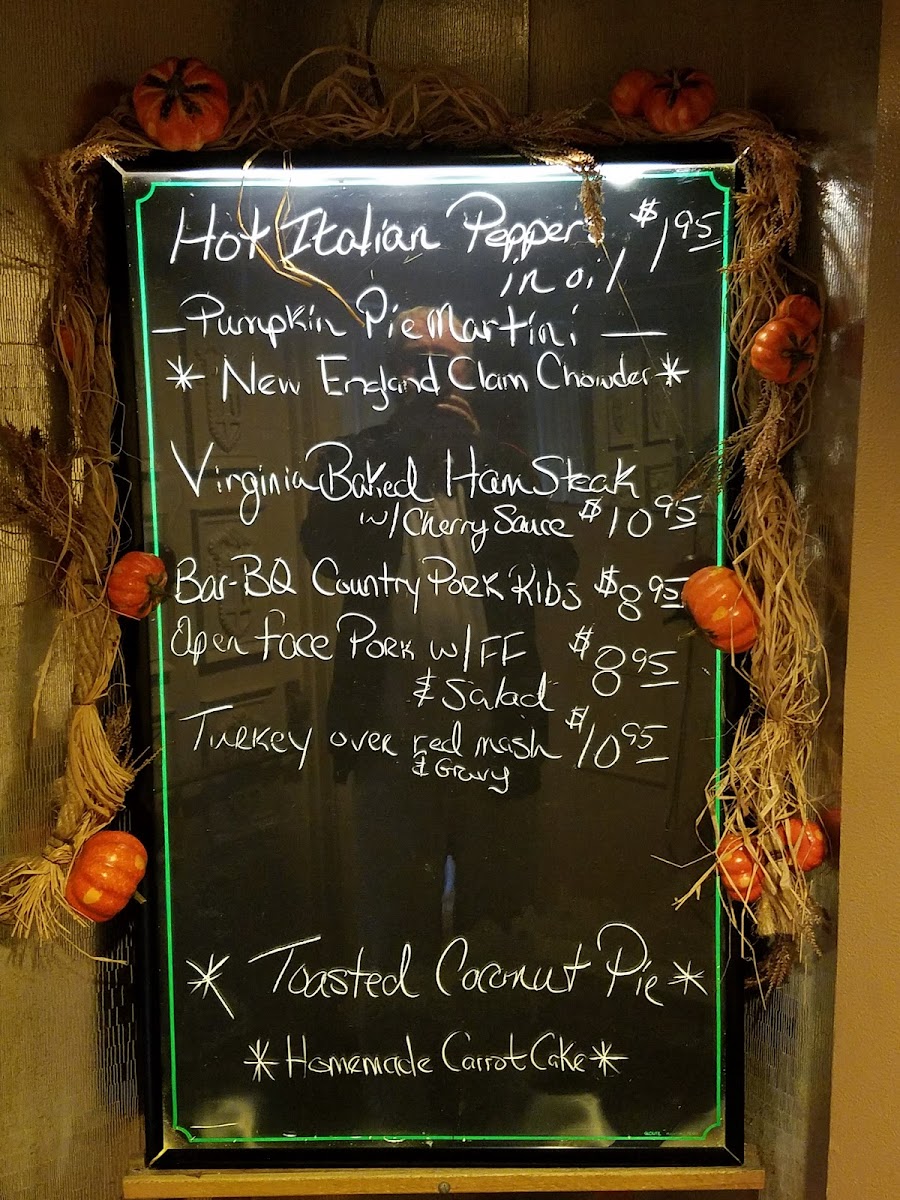 Hot Italian Peppers $1.95
in oil
— Pumpkin Pie Martini —
* New England Clam Chowder *
Virginia Baked Ham Steak
w/ Cherry Sauce $10.95
Bar-BQ Country Pork Ribs $8.95
Open face Pork w/ FF $8.95
& Salad
Turkey over red mash $10.95
& Gravy
* Toasted Coconut Pie *
* Homemade Carrot Cake *